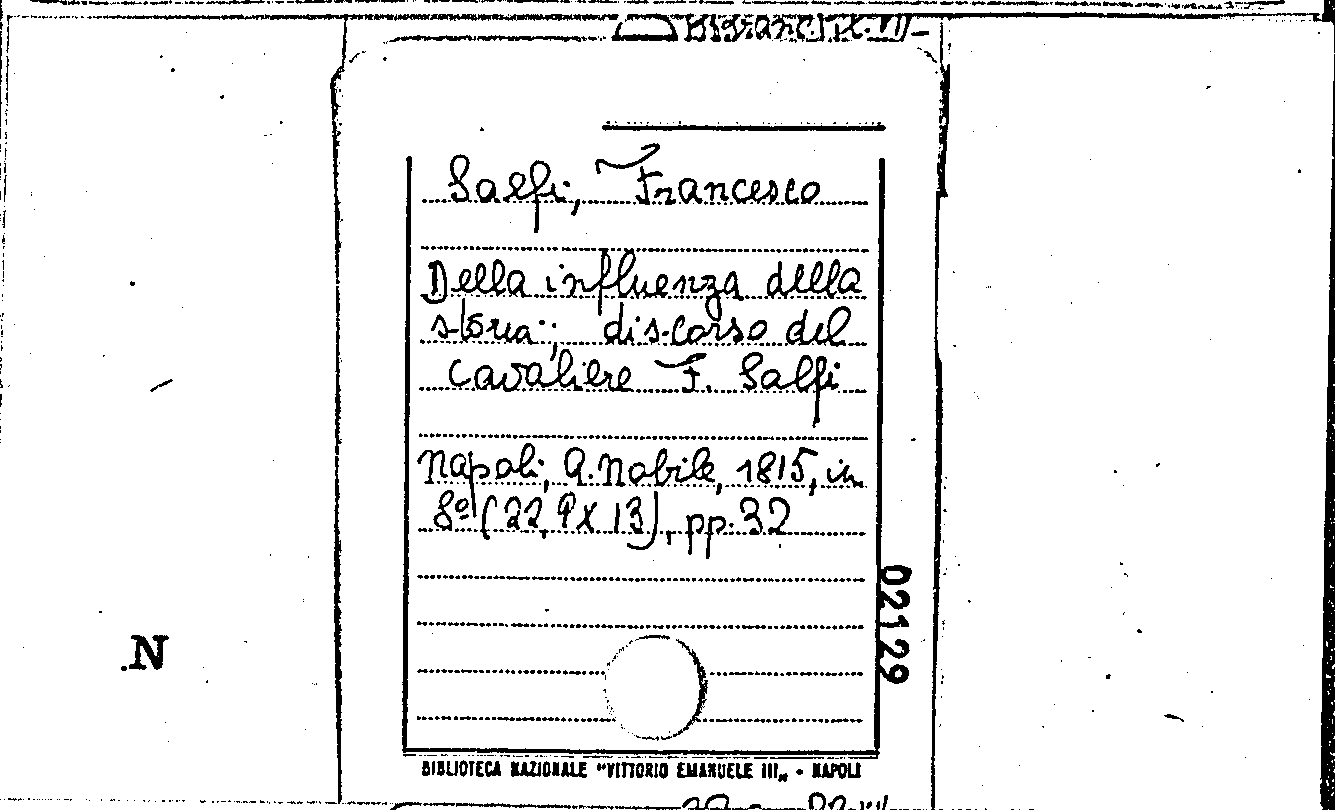 Salfi, Francesco
Della influenza della
storia; discorso del
Cavaliere F. Salfi
Napoli, A. Nobile, 1815, in
8º (22,9 X 13), pp. 32
02129
.N
BIBLIOTECA NAZIONALE "VITTORIO EMANUELE III„ - NAPOLI